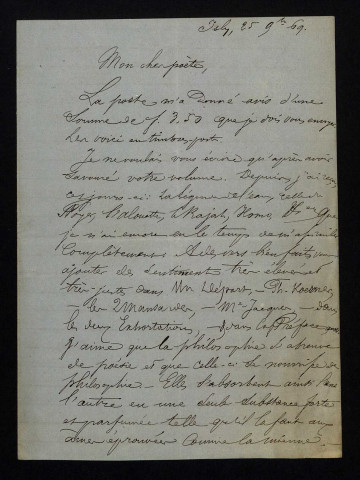 25 9bre 69.
Mon cher poète,
La poste m'a donné avis d'une
somme de f. 3.50 que je dois vous envoyer
Les voici en timbres-poste
Je ne voulais vous écrire qu'après avoir
savouré votre volume. Depuis, j'ai
ces jours-ci
je n'ai encore eu le temps de
complètement. A des vers bien faits, vous
ajoutez des sentiments très élevés et
très justes dans Un Départ
les 2 Mansardes, — Me Jacques — dans
les deux Exhortations, — dans la Préface
J'aime que la philosophie s'abreuve
de poésie et que celle-ci se nourrisse de
philosophie — Elles s'absorbent ainsi l'une
l'autre en une seule substance forte
et parfumée telle qu'il la faut aux
âmes éprouvées comme la mienne. —